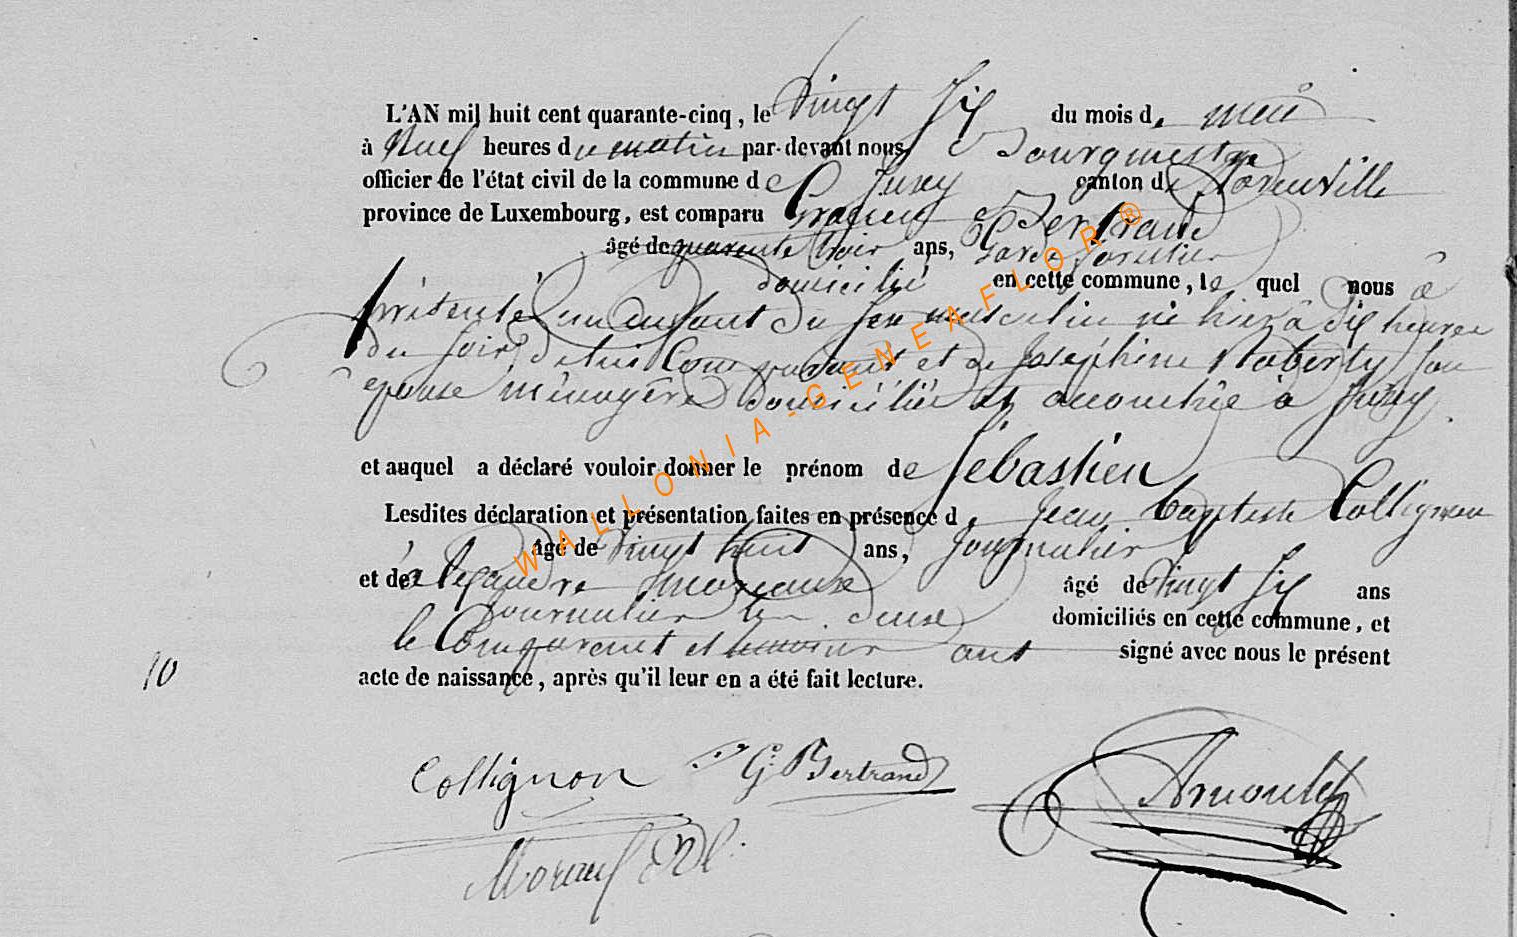 L'AN mil huit cent quarante-cinq, le Vingt Six du mois de mai
à Neuf heures du matin par-devant nous Bourgmestre
officier de l'état civil de la commune de Juzy canton de
province de Luxembourg, est comparu Bertrand
âgé de quarente trois ans, Garde forestier
domicilié en cette commune, le quel nous a
présenté un enfant du sex masculin né hier à dix heures
du soir de lui Comparant et de Joséphine Roberty son
épouse ménagère domiciliée et accouchée à Juzy
et auquel a déclaré vouloir donner le prénom de Sébastien
Lesdites déclaration et présentation faites en présence de Jean Baptiste Collignon
âgé de Vingt huit ans, Journalier
et de Alexandre Moreaux âgé de Vingt Six ans
Journalier deux domiciliés en cette commune, et
le Comparent et temoins ont signé avec nous le présent
acte de naissance, après qu'il leur en a été fait lecture.
10
Collignon G. Bertrand Arnould
WALLONIA-GENEAFLOR®